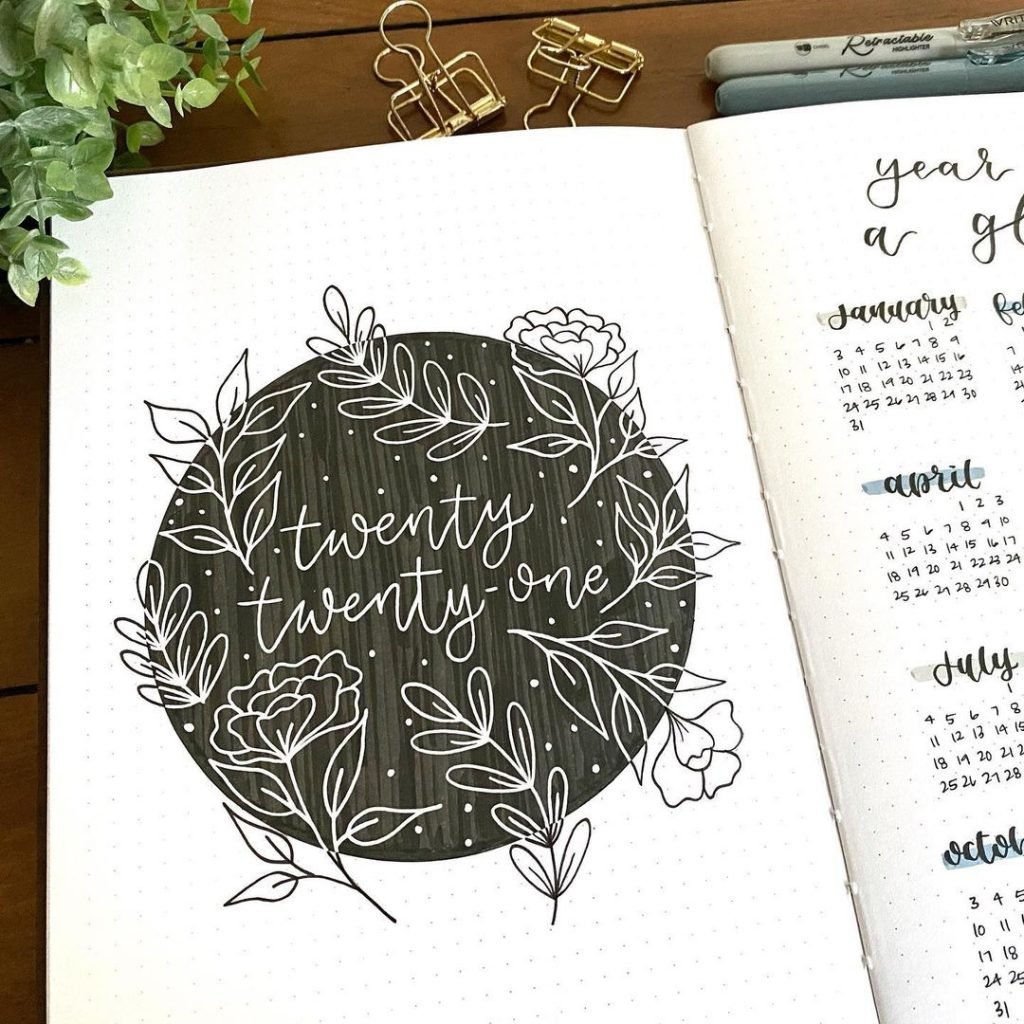 Retractable
HIGHLIGHTER
Retractable
HIGHLIGHTER
twenty
twenty-one
year
a
january
1 2
3 4 5 6 7 8 9
10 11 12 13 14 15 16
17 18 19 20 21 22 23
24 25 26 27 28 29 30
31
7
april
1 2 3
4 5 6 7 8 9 10
11 12 13 14 15 16 17
18 19 20 21 22 23 24
25 26 27 28 29 30
july
1
4 5 6 7 8
11 12 13 14 15
18 19 20 21
25 26 27 28
octo
3 4 5
10 11
17 18
24 25
31